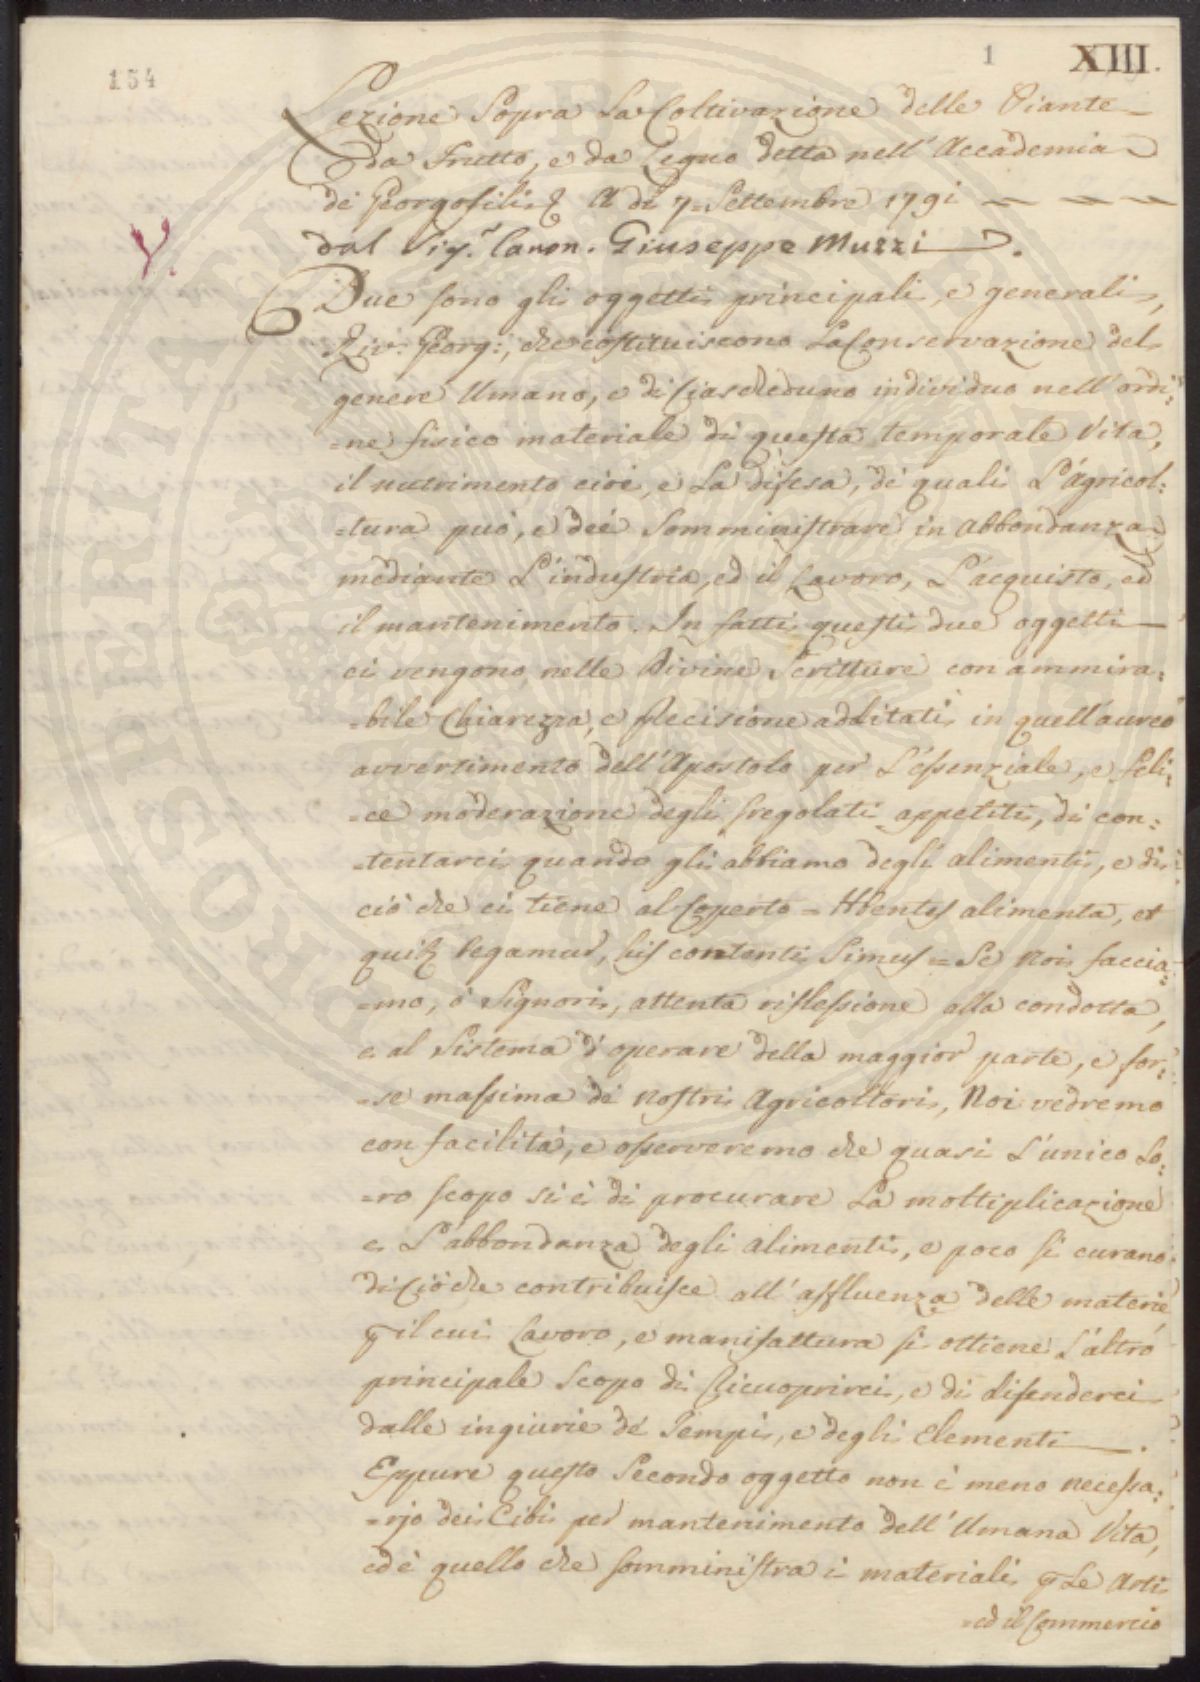 154
1 XIII.
Lezione Sopra La Coltivazione delle Piante
da Frutto, e da Legno detta nell'Accademia
de Georgofili A dì 7. Settembre 1791
dal Sig.r Canon. Giuseppe Muzzi.
Due sono gli oggetti principali, e generali,
Riv: Georg:, che costituiscono La Conservazione del
genere Umano, e di Ciascheduno individuo nell'ordi:
=ne fisico materiale di questa temporale Vita,
il nutrimento cioè, e La difesa, de quali L'Agricol:
=tura può, e deè Somministrare in abbondanza
mediante L'industria, ed il Lavoro, L'acquisto, ed
il mantenimento. In fatti questi due oggetti
ci vengono nelle Divine Scritture con ammira:
=bile Chiarezza, e Precisione additati in quell'aureo
avvertimento dell'Apostolo per L'essenziale, e feli:
=ce moderazione degli sregolati appetiti, di con:
=tentarci quando gli abbiamo degli alimenti, e di
ciò che ci tiene al Coperto = Hbentes alimenta, et
quib tegamur, his contenti Simus = Se Noi faccia:
=mo, o Signori, attenta riflessione alla condotta,
e al Sistema d'operare della maggior parte, e for:
=se massima de Nostri Agricoltori, Noi vedremo
con facilità, e osserveremo che quasi L'unico Lo:
=ro scopo si è di procurare La moltiplicazione
e L'abbondanza degli alimenti, e poco si curano
di Ciò che contribuisce all'affluenza delle materie
p il cui Lavoro, e manifattura si ottiene L'altro
principale Scopo di Ricuoprirci, e di difenderci
dalle ingiurie de Tempi, e degli Elementi.
Eppure questo Secondo oggetto non è meno necessa:
=rjo dei Cibi per mantenimento dell'Umana Vita,
ed è quello che somministra i materiali p Le Arti
=ed il Commercio
PROSPERITATI PUBLICAE AUGENDAE